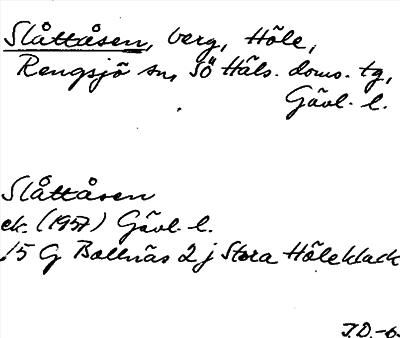 Slåttåsen, berg, Höle,
Rengsjö sn, Sö Häls. doms. tg,
Gävl. l.
Slåttåsen
ek. (1957) Gävl. l.
15 G Bollnäs 2 j Stora Höleklack
J.D.-6